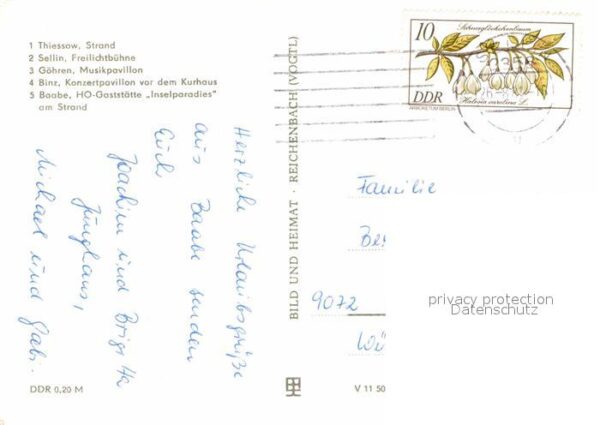 1 Thiessow, Strand
2 Sellin, Freilichtbühne
3 Göhren, Musikpavillon
4 Binz, Konzertpavillon vor dem Kurhaus
5 Baabe, HO-Gaststätte „Inselparadies"
am Strand
Herzliche Urlaubsgrüße
aus Baabe senden
Euch
Joachim und Brigitte
Junghans,
Michael und Gabi.
DDR 0,20 M
BILD UND HEIMAT · REICHENBACH (VOGTL)
V 11 50
10
Schneeglöckchenbaum
DDR
Halesia carolina L.
ARBORETUM BERLIN
Familie
Be
9072
privacy protection
Datenschutz